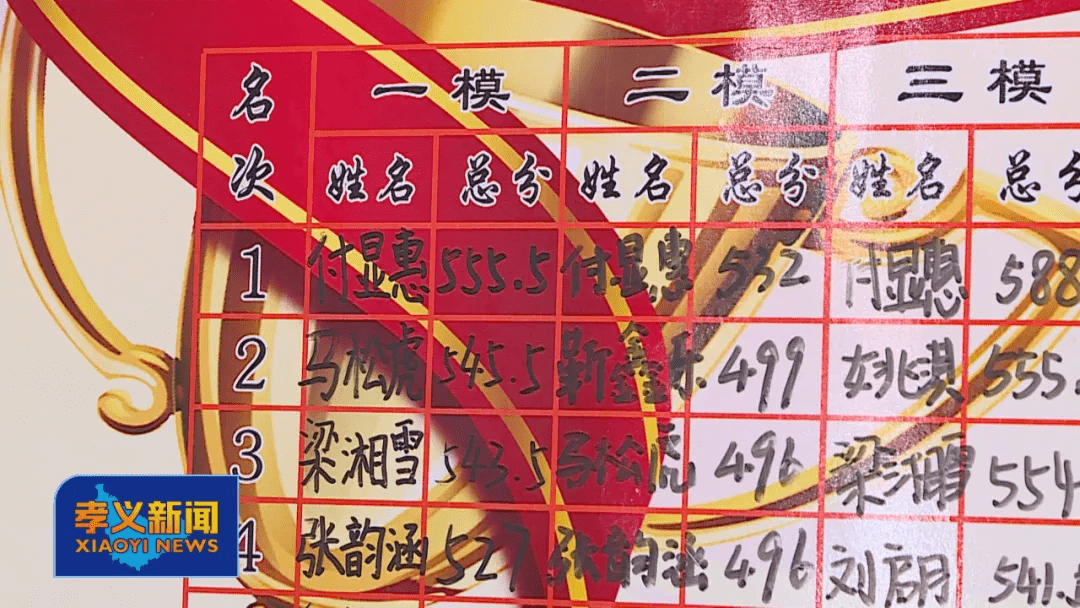 名次 一模 二模 三模
姓名 总分 姓名 总分 姓名 总分
1 付显惠 555.5 付显惠 532 付显惠 588
2 马松虎 545.5 靳鑫乐 499 姚淇 555.
3 梁湘雪 543.5 马松虎 496 梁湘雪 554
4 张韵涵 527 张韵涵 496 刘启明 541.5
孝义新闻
XIAOYI NEWS